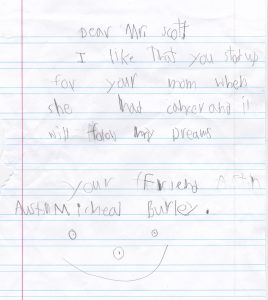 Dear Mr. Scott
I like that you stood up
for your mom when
she had cancer and i
will follow my dreams
your friend
Austin Micheal Burley.